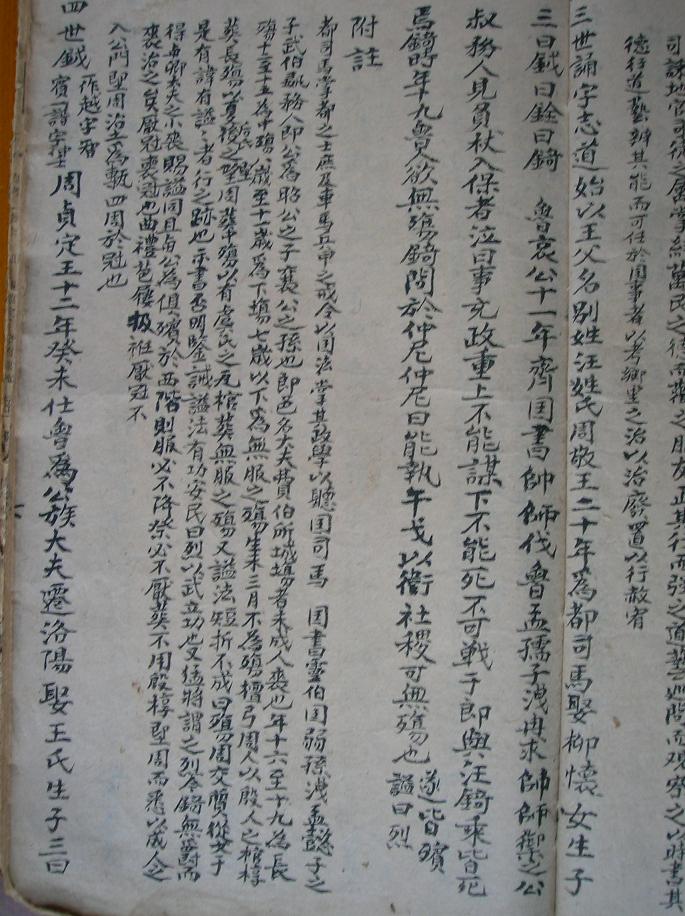 司諫地官司徒之屬掌糾萬民之德而勸之朋友正其行而強之道藝巡問而觀察之以時書其
德行道藝辨其能而可任於國事者以考鄉里之治以治廢置以行赦宥
三世誦字志道始以王父名別姓汪姓氏周敬王二十年為都司馬娶柳懷女生子
三曰鉞曰銓曰錡 魯哀公十一年齊国書帥師伐魯孟孺子洩冉求帥師禦之公
叔務人見負杖入保者泣曰事充政重上不能謀下不能死不可戰于郎與汪錡乘皆死
焉錡時年十九魯人欲無殤錡問於仲尼仲尼曰能執干戈以衛社稷可無殤也 遂皆殯
謚曰烈
附註
都司馬掌都之士庶及車馬兵甲之戒令以国法掌其政學以聽国司馬 国書靈伯国弱孫洩孟懿子之
子武伯彘務人即公為昭公之子襄公之孫也郎邑名大夫費伯所城殤者未成人喪也年十六至十九為長
殤十二至十五為中殤八歲至十一歲為下殤七歲以下為無服之殤生未三月不為殤檀弓周人以殷人之棺椁
葬長殤以夏后氏之堲周葬中殤以有虞氏之瓦棺葬無服之殤又謚法短折不成曰殤周
是有諱有謚謚者行之跡也 明鑒誠謚法有功安民曰烈以武立功也又猛將謂之烈今錡無爵而
得與卿大夫之喪賜謚同且與公為俱殯於西階則服必不降祭必不厭葬不用殷椁堲周而悉以成人之
喪治之矣厭冠喪冠也曲禮苞屨扱衽厭冠不
入公門堲周治之為甎四周於冠也
四世鉞 作越字
周貞定王十二年癸未仕魯為公族大夫遷洛陽娶王氏生子三曰